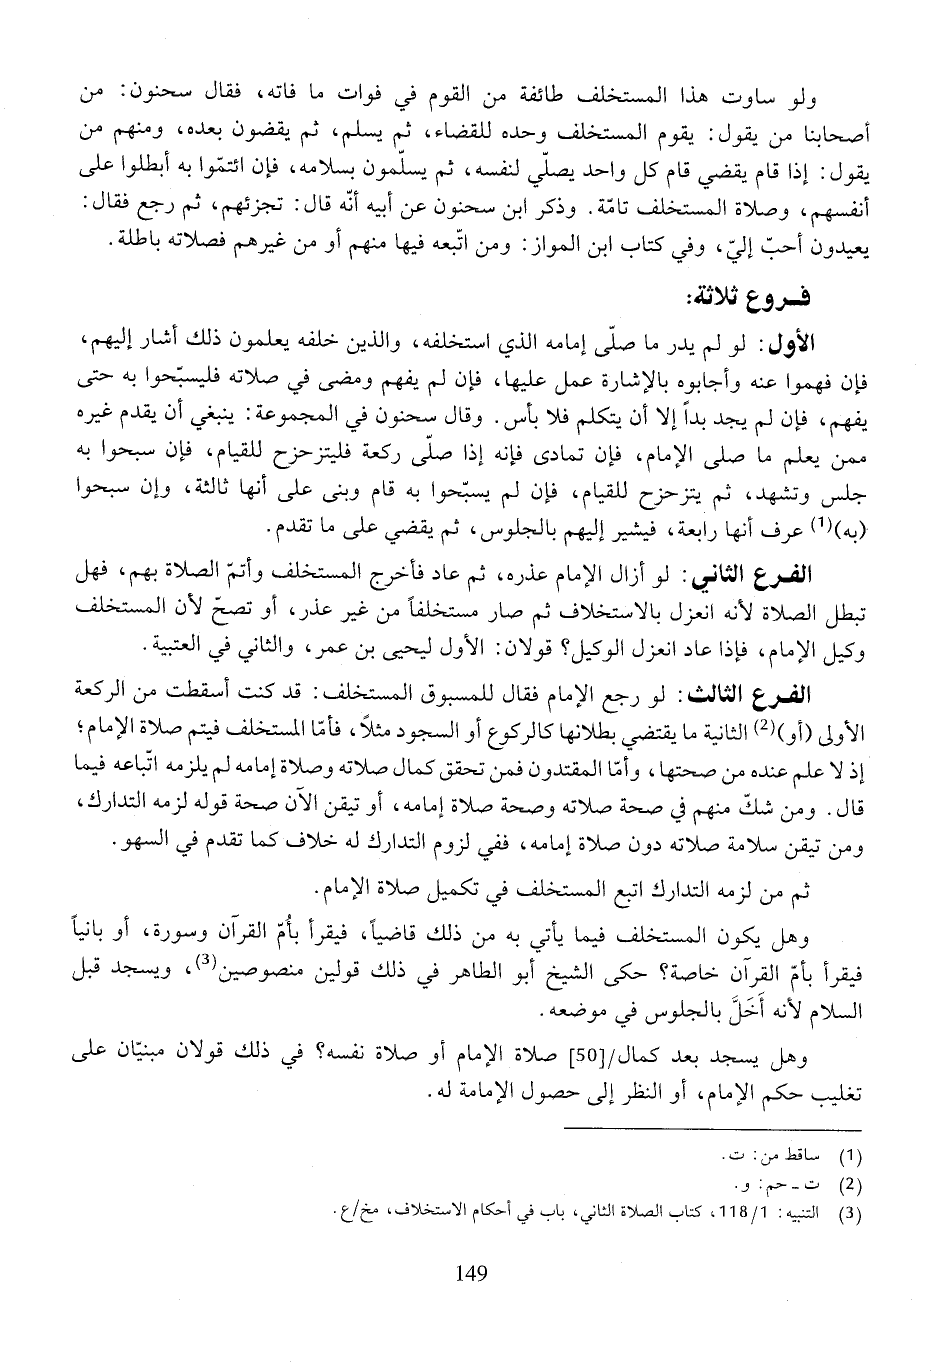 ولو ساوت هذا المستخلف طائفة من القوم في فوات ما فاته، فقال سحنون: من
أصحابنا من يقول: يقوم المستخلف وحده للقضاء، ثم يسلم، ثم يقضون بعده، ومنهم من
يقول: إذا قام يقضي قام كل واحد يصلّي لنفسه، ثم يسلّمون بسلامه، فإن ائتمّوا به أبطلوا على
أنفسهم، وصلاة المستخلف تامّة. وذكر ابن سحنون عن أبيه أنّه قال: تجزئهم، ثم رجع فقال:
يعيدون أحبّ إليّ، وفي كتاب ابن المواز: ومن اتّبعه فيها منهم أو من غيرهم فصلاته باطلة.
فروع ثلاثة:
الأول: لو لم يدر ما صلّى إمامه الذي استخلفه، والذين خلفه يعلمون ذلك أشار إليهم،
فإن فهموا عنه وأجابوه بالإشارة عمل عليها، فإن لم يفهم ومضى في صلاته فليسبّحوا به حتى
يفهم، فإن لم يجد بداً إلا أن يتكلم فلا بأس. وقال سحنون في المجموعة: ينبغي أن يقدم غيره
ممن يعلم ما صلى الإمام، فإن تمادى فإنه إذا صلّى ركعة فليتزحزح للقيام، فإن سبحوا به
جلس وتشهد، ثم يتزحزح للقيام، فإن لم يسبّحوا به قام وبنى على أنها ثالثة، وإن سبحوا
(به)(1) عرف أنها رابعة، فيشير إليهم بالجلوس، ثم يقضي على ما تقدم.
الفرع الثاني: لو أزال الإمام عذره، ثم عاد فأخرج المستخلف وأتمّ الصلاة بهم، فهل
تبطل الصلاة لأنه انعزل بالاستخلاف ثم صار مستخلفاً من غير عذر، أو تصحّ لأن المستخلف
وكيل الإمام، فإذا عاد انعزل الوكيل؟ قولان: الأول ليحيى بن عمر، والثاني في العتبية.
الفرع الثالث: لو رجع الإمام فقال للمسبوق المستخلف: قد كنت أسقطت من الركعة
الأولى (أو)(2) الثانية ما يقتضي بطلانها كالركوع أو السجود مثلاً، فأمّا المستخلف فيتم صلاة الإمام؛
إذ لا علم عنده من صحتها، وأمّا المقتدون فمن تحقق كمال صلاته وصلاة إمامه لم يلزمه اتّباعه فيما
قال. ومن شكّ منهم في صحة صلاته وصحة صلاة إمامه، أو تيقن الآن صحة قوله لزمه التدارك،
ومن تيقن سلامة صلاته دون صلاة إمامه، ففي لزوم التدارك له خلاف كما تقدم في السهو.
ثم من لزمه التدارك اتبع المستخلف في تكميل صلاة الإمام.
وهل يكون المستخلف فيما يأتي به من ذلك قاضياً، فيقرأ بأمّ القرآن وسورة، أو بانياً
فيقرأ بأمّ القرآن خاصة؟ حكى الشيخ أبو الطاهر في ذلك قولين منصوصين(3)، ويسجد قبل
السلام لأنه أَخَلَّ بالجلوس في موضعه.
وهل يسجد بعد كمال/[50] صلاة الإمام أو صلاة نفسه؟ في ذلك قولان مبنيّان على
تغليب حكم الإمام، أو النظر إلى حصول الإمامة له.
(1) ساقط من: ت.
(2) ت ـ حم: و.
(3) التنبيه: 118/1، كتاب الصلاة الثاني، باب في أحكام الاستخلاف، مخ/ع.
149